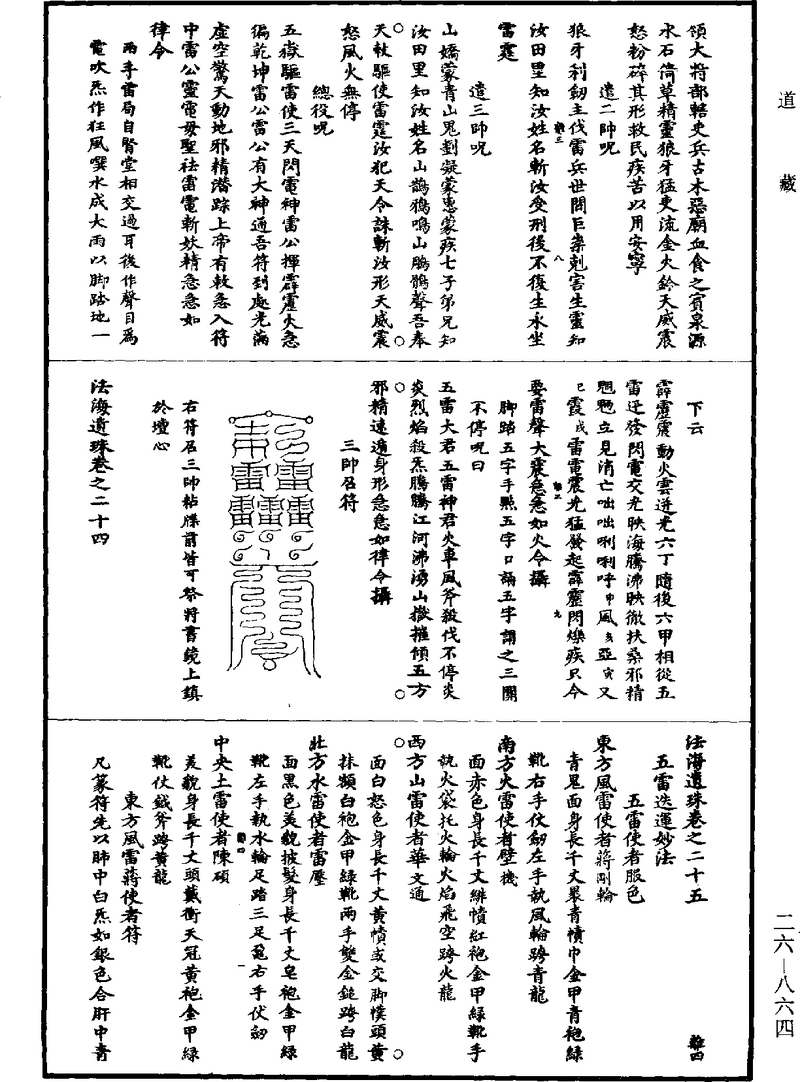 道藏
領大將部轄吏兵古木惡廟血食之賓泉源
水石倚草精靈狼牙猛吏流金火鈴天威震
怒粉碎其形救民疾苦以用安寧
遣二帥呪
狼牙利劒主伐雷兵世間巨祟剋害生靈知
汝田里知汝姓名斬汝受刑後不復生永坐
雷霆
遣三帥呪
山嬌蒙青山鬼劉凝蒙恵蒙疾七子弟兄知
汝田里知汝姓名山鵲鴉鳴山鵰鶻聲吾奉
天敕驅使雷霆汝犯天令誅斬汝形天威震
怒風火無停
總役呪
五嶽驅雷使三天閃電神雷公揮霹靂火急
徧乾坤雷公雷公有大神通吾符到處光滿
虛空驚天動地邪精潛踪上帝有敕急入符
中雷公靈電母聖祛雷電斬妖精急急如
律令
兩手雷局自腎堂相交過耳後作聲目為
電吹炁作狂風噀水成大雨以脚踏地一
下云
霹靂震動火雲迸光六丁隨後六甲相從五
雷迅發閃電交光映海騰沸映徹扶桑邪精
魍魎立見清亡咄咄唎唎呼申風亥亞寅又
巳霞戌雷電震光猛發起霹靂閃爍疾只今
要雷聲大震急急如火令攝
脚踏五字手㸃五字口誦五字誦之三關
不停呪曰
五雷大君五雷神君火車風斧殺伐不停炎
炎烈焰殺炁騰騰江河沸湧山嶽摧傾五方
邪精速遁身形急急如律令攝
三帥召符
右符召三帥粘牒前皆可祭將書鏡上鎮
於壇心
法海遺珠卷之二十四
法海遺珠卷之二十五
五雷迭運妙法
五雷使者服色
東方風雷使者蔣剛輪
青鬼面身長千丈裹青幘巾金甲青袍緑
靴右手仗劒左手執風輪跨青龍
南方火雷使者壁機
面赤色身長千丈緋幘紅袍金甲緑靴手
執火袋托火輪火焰飛空跨火龍
西方山雷使者華文通
面白怒色身長千丈黃幘或交脚幞頭黃
抹額白袍金甲緑靴兩手雙金鎚跨白龍
北方水雷使者雷壓
面黑色美貌披髮身長千丈皂袍金甲緑
靴左手執水輪足踏三足黿右手仗劒
中央土雷使者陳碩
美貌身長千丈頭戴衝天冠黃袍金甲緑
靴仗鉞斧跨黃龍
東方風雷蔣使者符
凡篆符先以肺中白炁如銀色合肝中青
二六—八六四